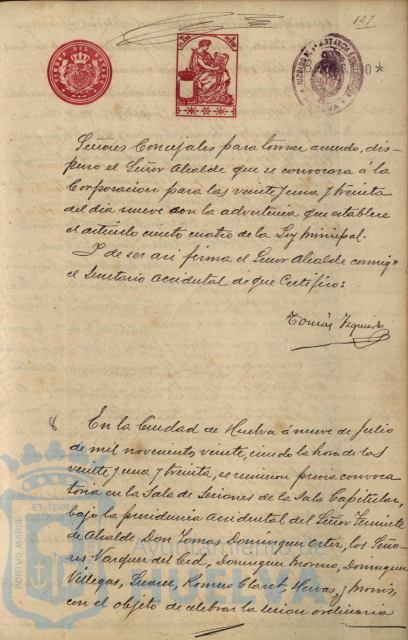 127
TIMBRE DEL ESTADO
JUZGADO DE 1ª INSTANCIA
HUELVA
Señores Concejales para tomar acuerdo, dis-
puso el Señor Alcalde que se convocara á la
Corporacion para las veinte y una y treinta
del dia nueve con la advertencia que establece
el artículo ciento cuatro de la Ley municipal.
Y de ser asi firma el Señor Alcalde conmigo
el Secretario Accidental de que Certifico:
Tomás
8 En la Ciudad de Huelva á nueve de Julio
de mil novecientos veinte, siendo la hora de las
veinte y una y treinta, se reunieron previa convoca
toria en la Sala de Sesiones de la Sala Capitular,
bajo la presidencia Accidental del Señor Teniente
de Alcalde Don Tomas Dominguez Ortiz, los Seño-
res Vazquez del Cid, Dominguez Moreno, Dominguez
Villegas, Suarez, Romero Claret, Hervas, y
con el objeto de celebrar la sesion ordinaria
ET TERRÆ
PORTUS MARIS
Ayuntamiento de
HUELVA